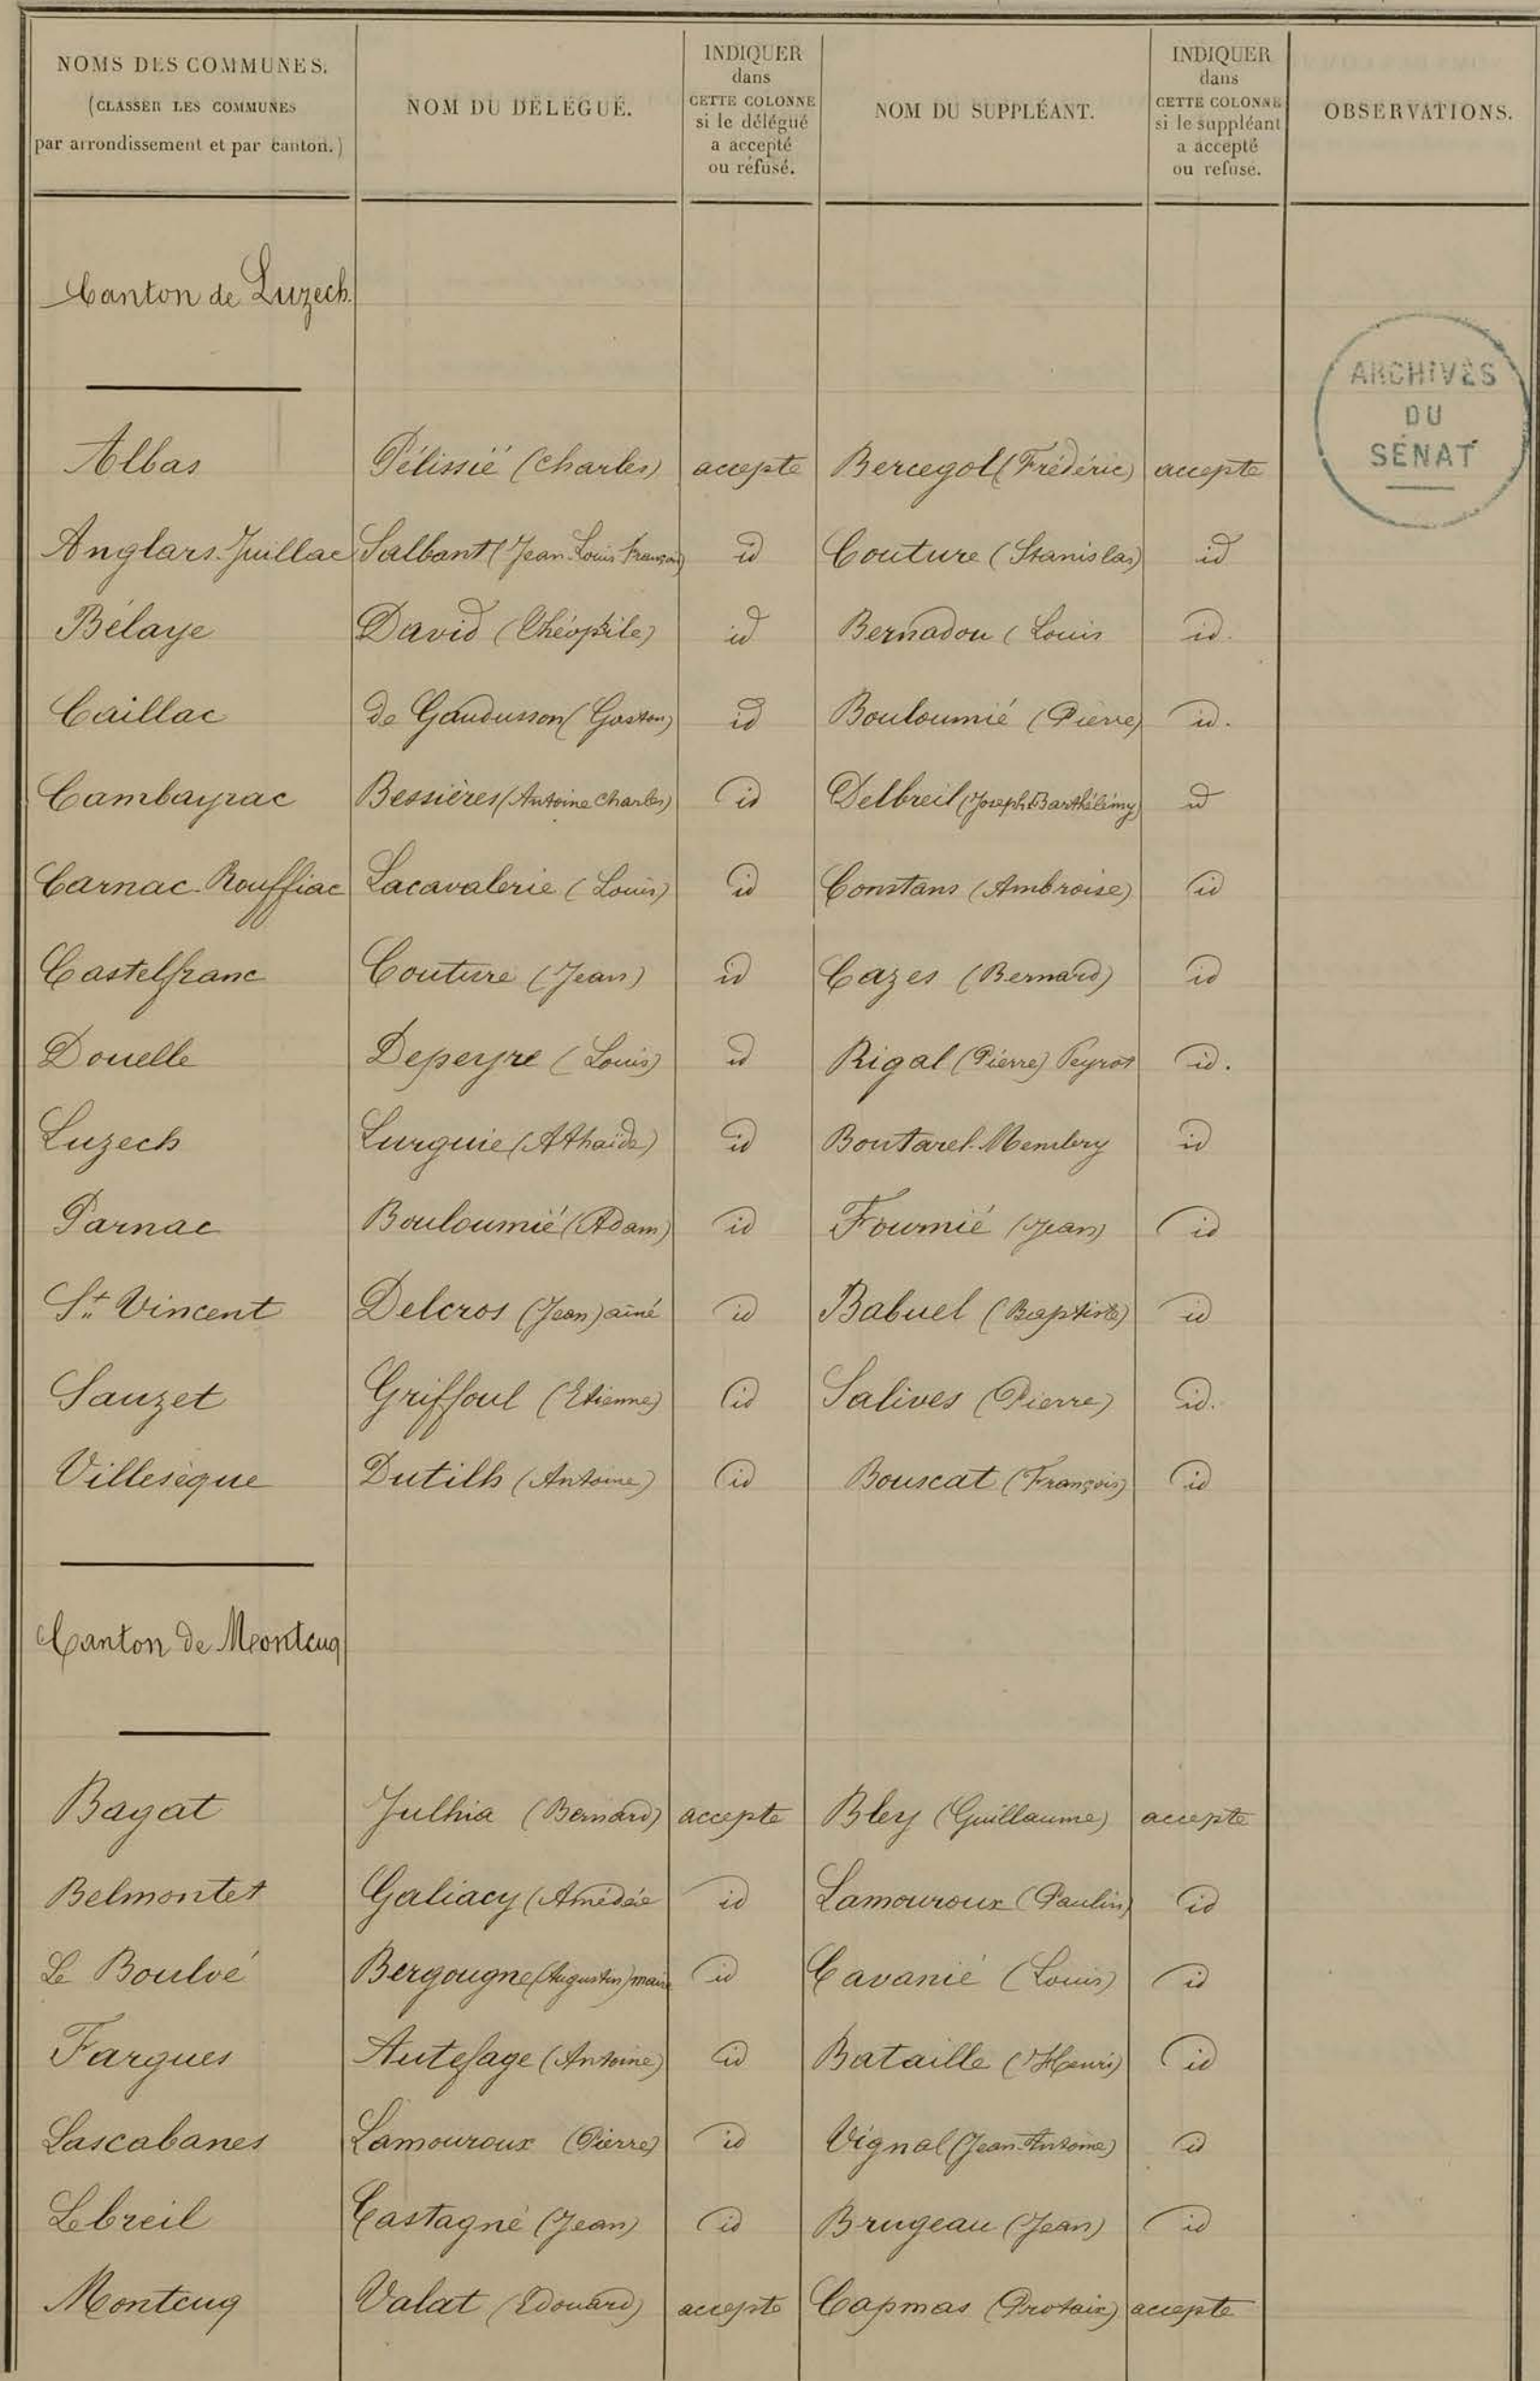 NOMS DES COMMUNES.
(CLASSER LES COMMUNES
par arrondissement et par canton.)
NOM DU DÉLÉGUÉ.
INDIQUER
dans
CETTE COLONNE
si le délégué
a accepté
ou refusé.
NOM DU SUPPLÉANT.
INDIQUER
dans
CETTE COLONNE
si le suppléant
a accepté
ou refusé.
OBSERVATIONS.
Canton de Luzech.
ARCHIVES
DU
SÉNAT
Albas Pélissié (Charles) accepte Bercegol (Frédéric) accepte
Anglars-Juillac Salbant (Jean-Louis François) id Couture (Stanislas) id
Bélaye David (Théophile) id Bernadou (Louis id.
Caillac de Gaudusson (Gaston) id Bouloumié (Pierre) id.
Cambayrac Bessières (Antoine Charles) id Delbreil (Joseph Barthélémy) id
Carnac-Rouffiac Lacavalerie (Louis) id Constans (Ambroise) id
Castelfranc Couture (Jean) id Cazes (Bernard) id
Douelle Depeyre (Louis) id Rigal (Pierre) Peyrot id.
Luzech Lurguie (Athaïde) id Boutarel-Membry id
Parnac Bouloumié (Adam) id Fournié (Jean) id
St Vincent Delcros (Jean) aîné id Babuel (Baptiste) id
Sauzet Griffoul (Etienne) id Salives (Pierre) id.
Villesèque Dutilh (Antoine) id Bouscat (François) id
Canton de Montcuq
Bagat Julhia (Bernard) accepte Bley (Guillaume) accepte
Belmontet Galiacy (Amédée id Lamouroux (Paulin) id
Le Boulvé Bergougne (Augustin) maire id Cavanié (Louis) id
Fargues Autefage (Antoine) id Bataille (Henri) id
Lascabanes Lamouroux (Pierre) id Vignal (Jean-Antoine) id
Lebreil Castagné (Jean) id Brugeau (Jean) id
Montcuq Valat (Edouard) accepte Capmas (Protais) accepte